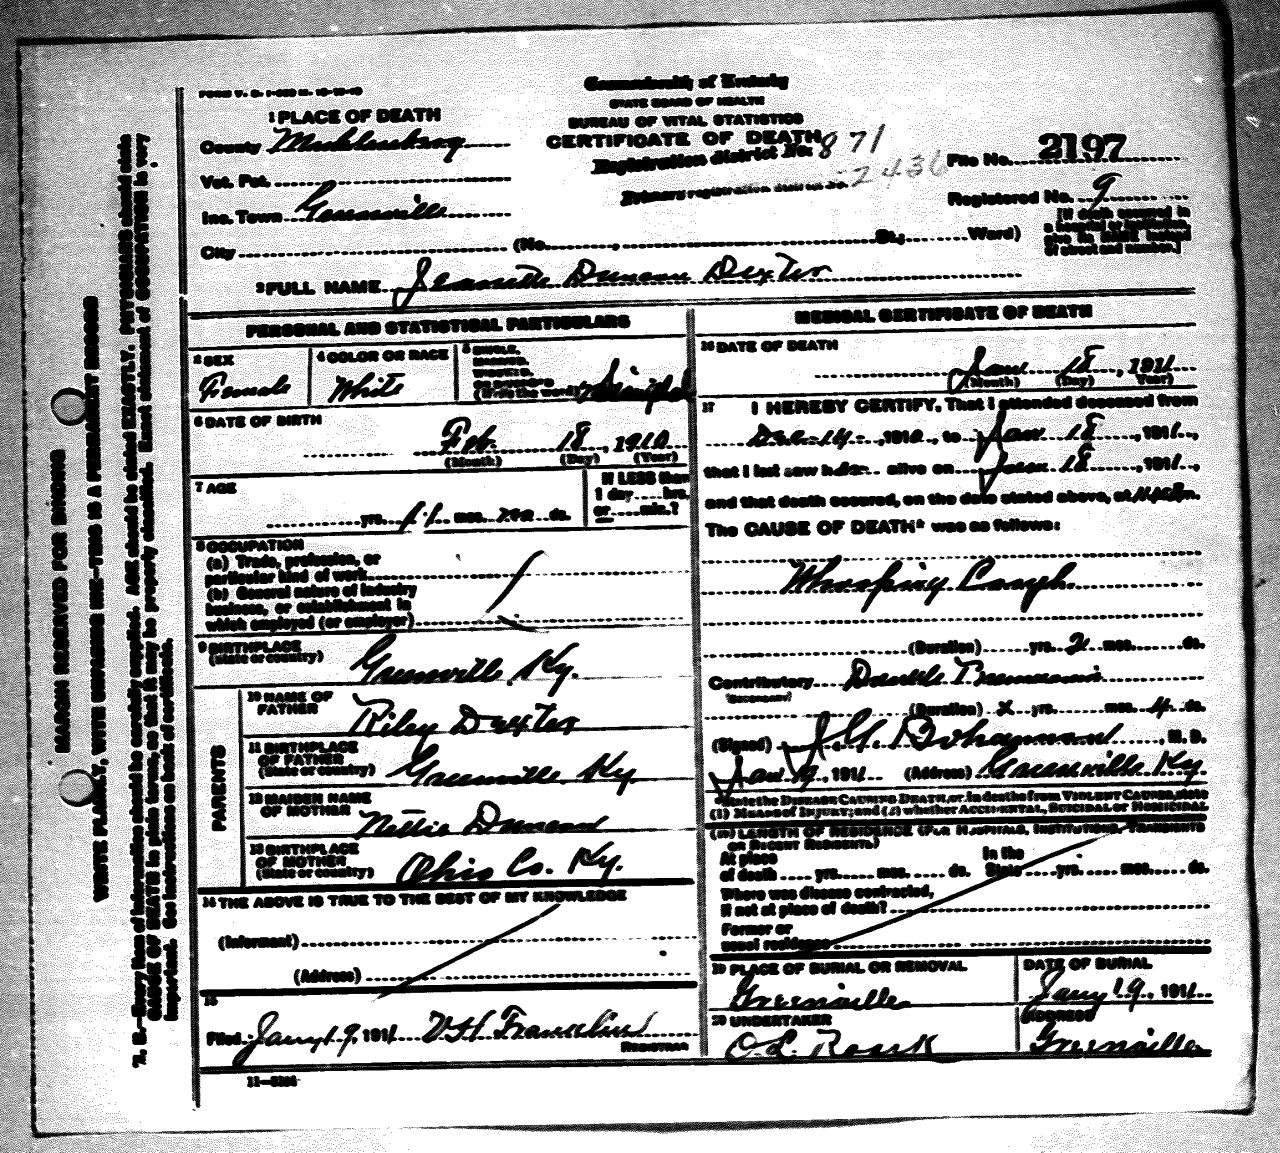 Commonwealth of Kentucky
STATE BOARD OF HEALTH
BUREAU OF VITAL STATISTICS
CERTIFICATE OF DEATH
1 PLACE OF DEATH
County Muhlenberg
Vot. Pct.
Inc. Town Greenville
City (No. , St.; Ward)
Registration district No. 871
Primary registration district No. 2436
File No. 2197
Registered No. 9
[If death occurred in
a hospital or institution,
give its NAME instead
of street and number.]
2 FULL NAME Duncan Dexter
PERSONAL AND STATISTICAL PARTICULARS
3 SEX
Female
4 COLOR OR RACE
White
5 SINGLE,
MARRIED,
WIDOWED,
OR DIVORCED
(Write the word) Single
6 DATE OF BIRTH
Feb. 18, 1910
(Month) (Day) (Year)
7 AGE
yrs. 11 mos. ds.
If LESS than
1 day ....hrs.
or ....min.?
8 OCCUPATION
(a) Trade, profession, or
particular kind of work
(b) General nature of industry
business, or establishment in
which employed (or employer)
9 BIRTHPLACE
(State or country) Greenville Ky.
PARENTS
10 NAME OF
FATHER Riley Dexter
11 BIRTHPLACE
OF FATHER
(State or country) Greenville Ky.
12 MAIDEN NAME
OF MOTHER Nettie Duncan
13 BIRTHPLACE
OF MOTHER
(State or country) Ohio Co. Ky.
14 THE ABOVE IS TRUE TO THE BEST OF MY KNOWLEDGE
(Informant)
(Address)
15
Filed Jany 19, 1911 Franklin
REGISTRAR
11-3184
MEDICAL CERTIFICATE OF DEATH
16 DATE OF DEATH
Jan 18, 1911
(Month) (Day) (Year)
17 I HEREBY CERTIFY, That I attended deceased from
Dec-14-, 1910, to Jan 18, 1911,
that I last saw her alive on Jan 18, 1911,
and that death occured, on the date stated above, at m.
The CAUSE OF DEATH* was as follows:
Whooping Cough
(Duration) yrs. 2 mos. ds.
Contributory Double Pneumonia
(SECONDARY)
(Duration) x yrs. mos. 4 ds.
(Signed) J G Bohannon, M. D.
Jan 19, 1911 (Address) Greenville Ky
*State the DISEASE CAUSING DEATH, or, in deaths from VIOLENT CAUSES, state
(1) MEANS OF INJURY; and (2) whether ACCIDENTAL, SUICIDAL or HOMICIDAL
(18) LENGTH OF RESIDENCE (FOR HOSPITALS, INSTITUTIONS, TRANSIENTS
OR RECENT RESIDENTS)
At place
of death yrs. mos. ds.
In the
State yrs. mos. ds.
Where was disease contracted,
if not at place of death?
Former or
usual residence
19 PLACE OF BURIAL OR REMOVAL
Greenville
DATE OF BURIAL
Jany 19, 1911
20 UNDERTAKER
O. L. Roark
ADDRESS
Greenville
MARGIN RESERVED FOR BINDING
WRITE PLAINLY, WITH UNFADING INK—THIS IS A PERMANENT RECORD
N. B.—Every item of information should be carefully supplied. AGE should be stated EXACTLY. PHYSICIANS should state
CAUSE OF DEATH in plain terms, so that it may be properly classified. Exact statement of OCCUPATION is very
important. See instructions on back of certificate.